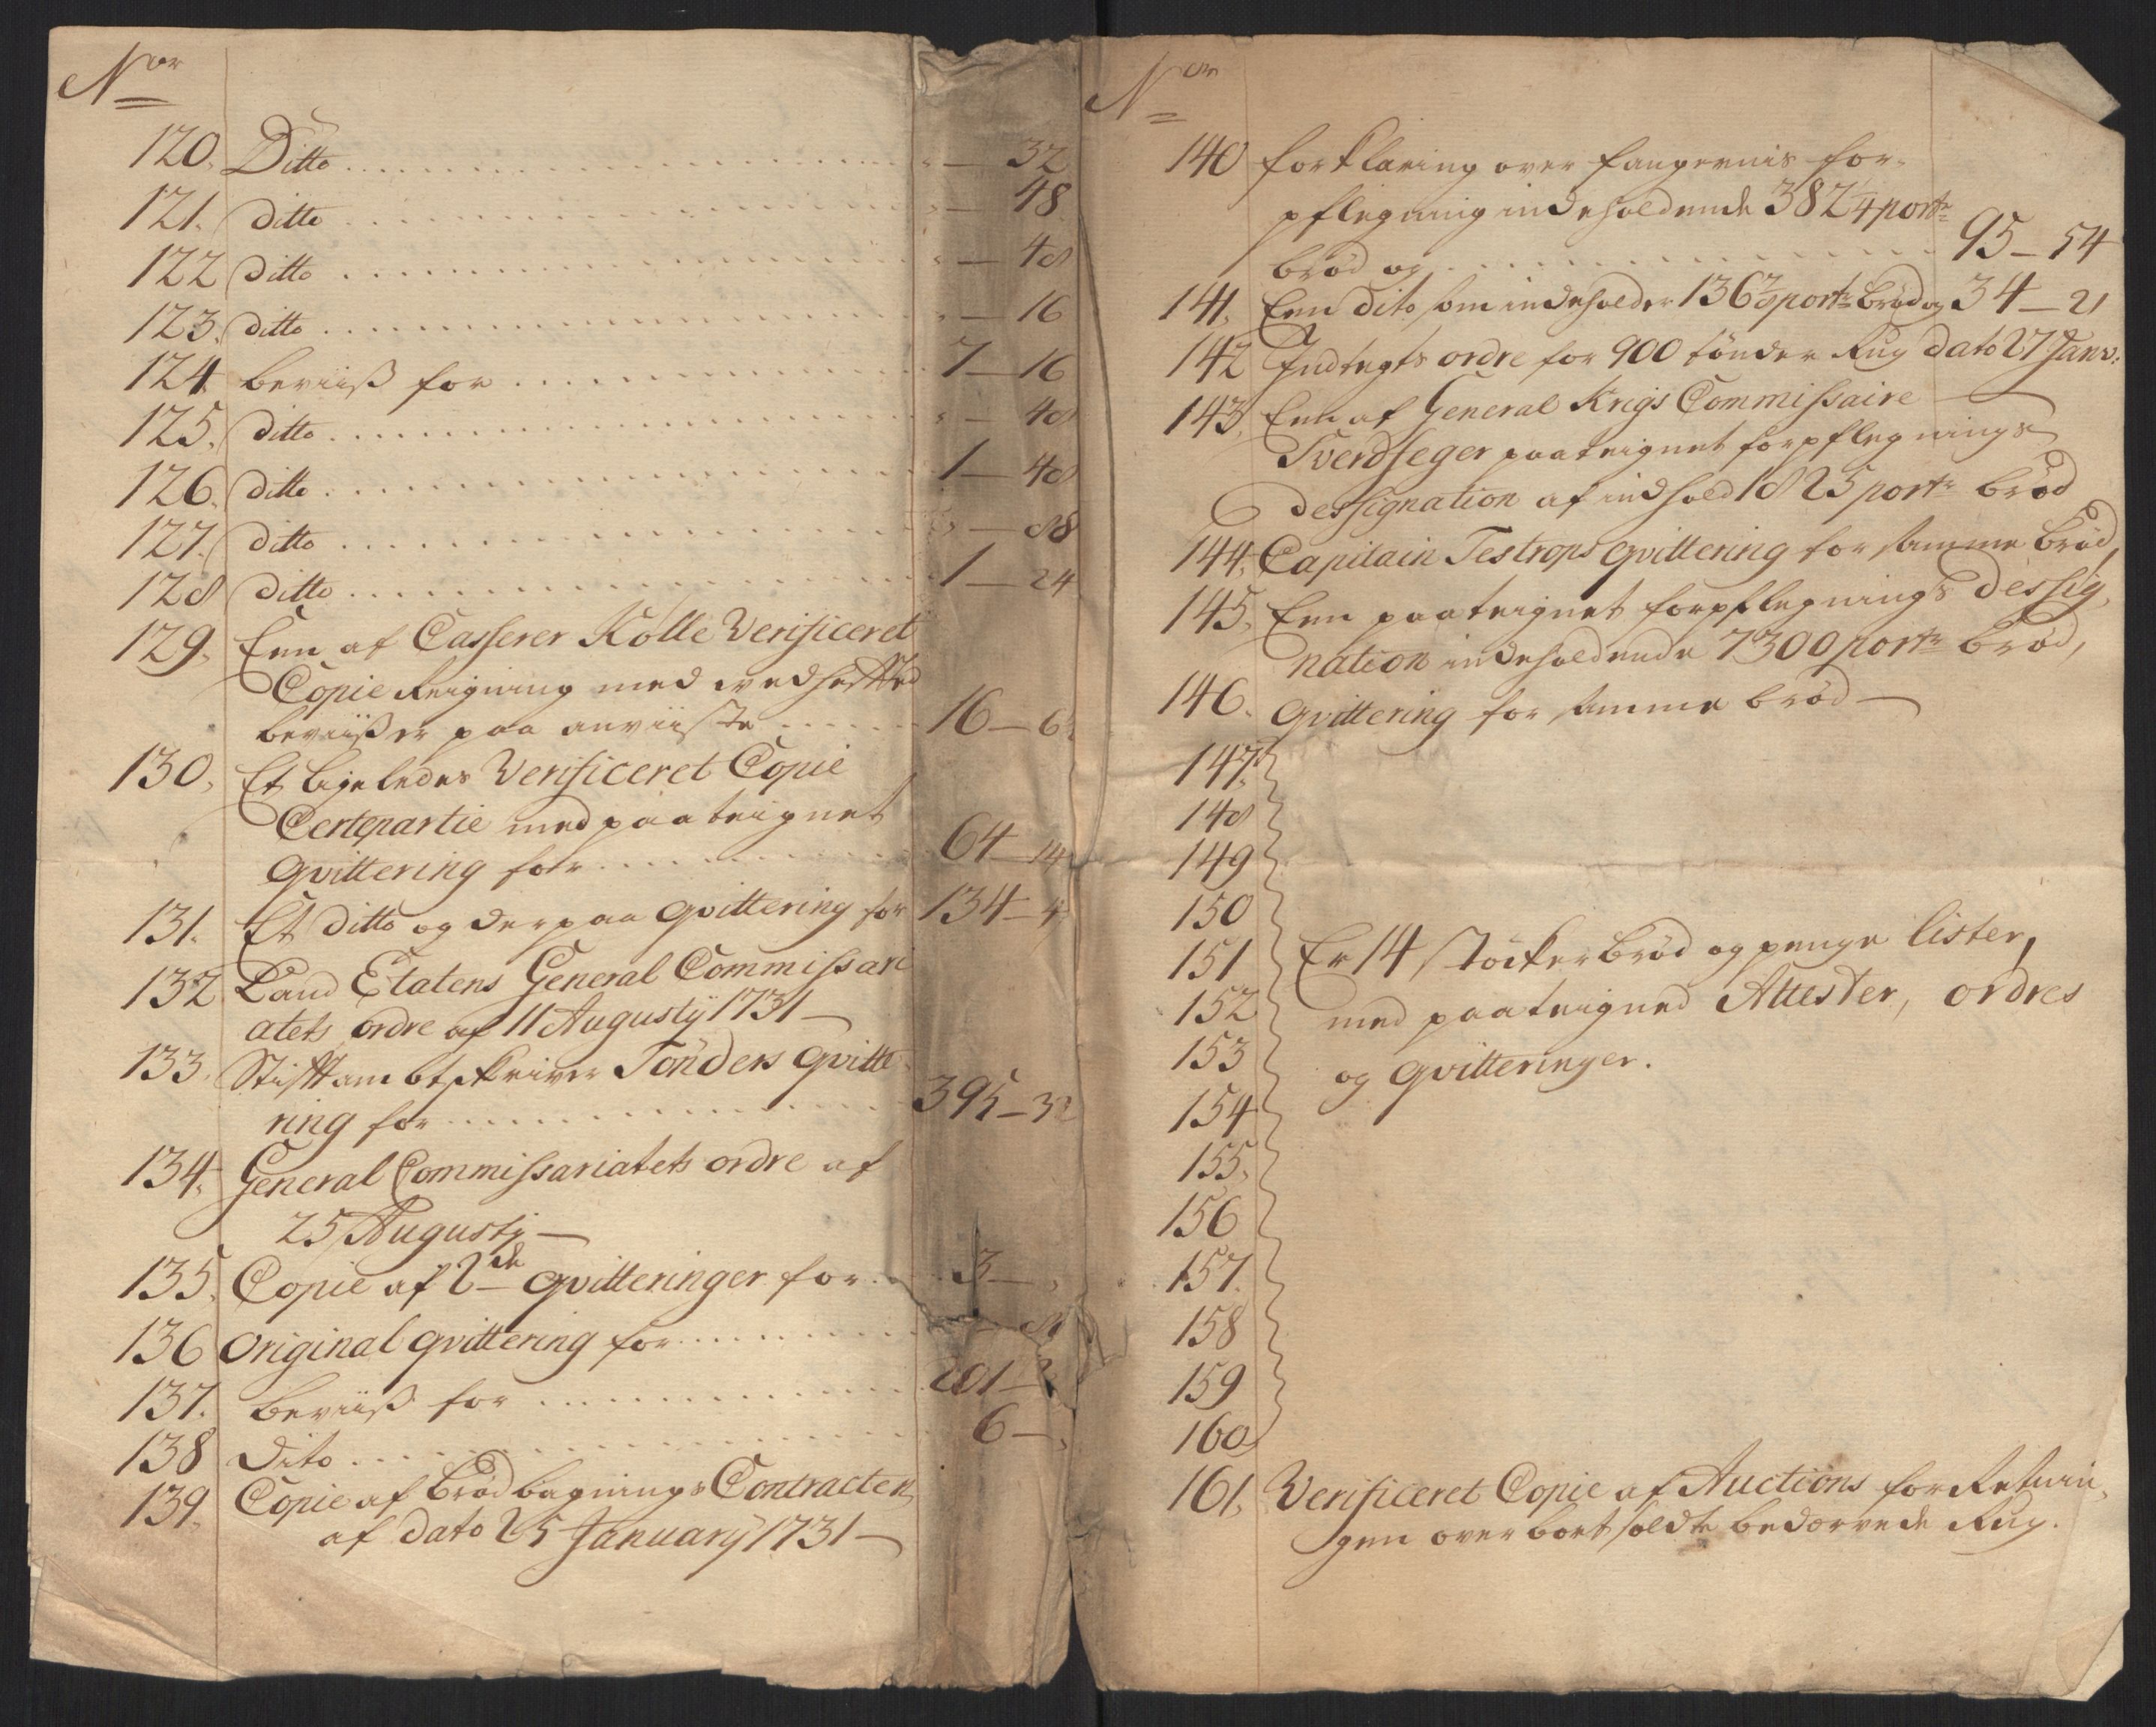 Nor
120. Ditto . . . „ — 32
121. ditto . . . „ — 48
122 ditto . . . „ — 48
123. ditto . . . „ — 16
124 beviiß for . . . 7 — 16
125. ditto . . . „ — 48
126. ditto . . . 1 — 48
127. ditto . . . „ — 88
128 ditto . . . 1 — 24
129. Een af Casserer Kölle Verificeret
Copie Reigning med vedheftted
beviißer paa anviiste . . . 16 — 6
130. Et ligeledes Verificeret Copie
Certepartie med paateignet
qvittering for . . . 64 — 14
131. Et ditto og derpaa qvittering for 134 — 4
132 Land Etatens General Commissari
atets ordre af 11 Augustij 1731 —
133. Stifftambtskriver Tönders qvitte
ring for . . . 395 — 32
134. General Commissariatets ordre af
25 Augustj —
135. Copie af 2de qvitteringer for . . 3 — „
136 Original qvittering for . . .
137. beviiß for . . . 201 —
138 Dito . . . 6 — „
139. Copie af Brødbagnings Contracten
af dato 25 January 1731 —
Nor
140 forklaring over fangernis for-
pflegning indeholdende 382 1/4 port
brød og . . . 95 — 54
141. Een dito som indeholder 136 port brød og 34 — 21
142 Indtegts ordre for 900 tönder Rug dato 27 Janv:
143. Een af General Krigs Commissaire
Sverdfeger paateignet forpflegnings
dessignation af indhold 1825 port brød
144. Capitain Testrops qvittering for samme brød,
145. Een paateignet forpflegnings dessig
nation indeholdende 7300 port brød,
146. qvittering for samme brød —
147.
148
149
150
151 Er 14 støcker brød og penge lister,
152 med paateigned Attester, ordres
153 og qvitteringer.
154
155.
156
157.
158
159
160
161. Verificeret Copie af Auctions forRetnin,
gen over bortsoldte bedørvede Rug.